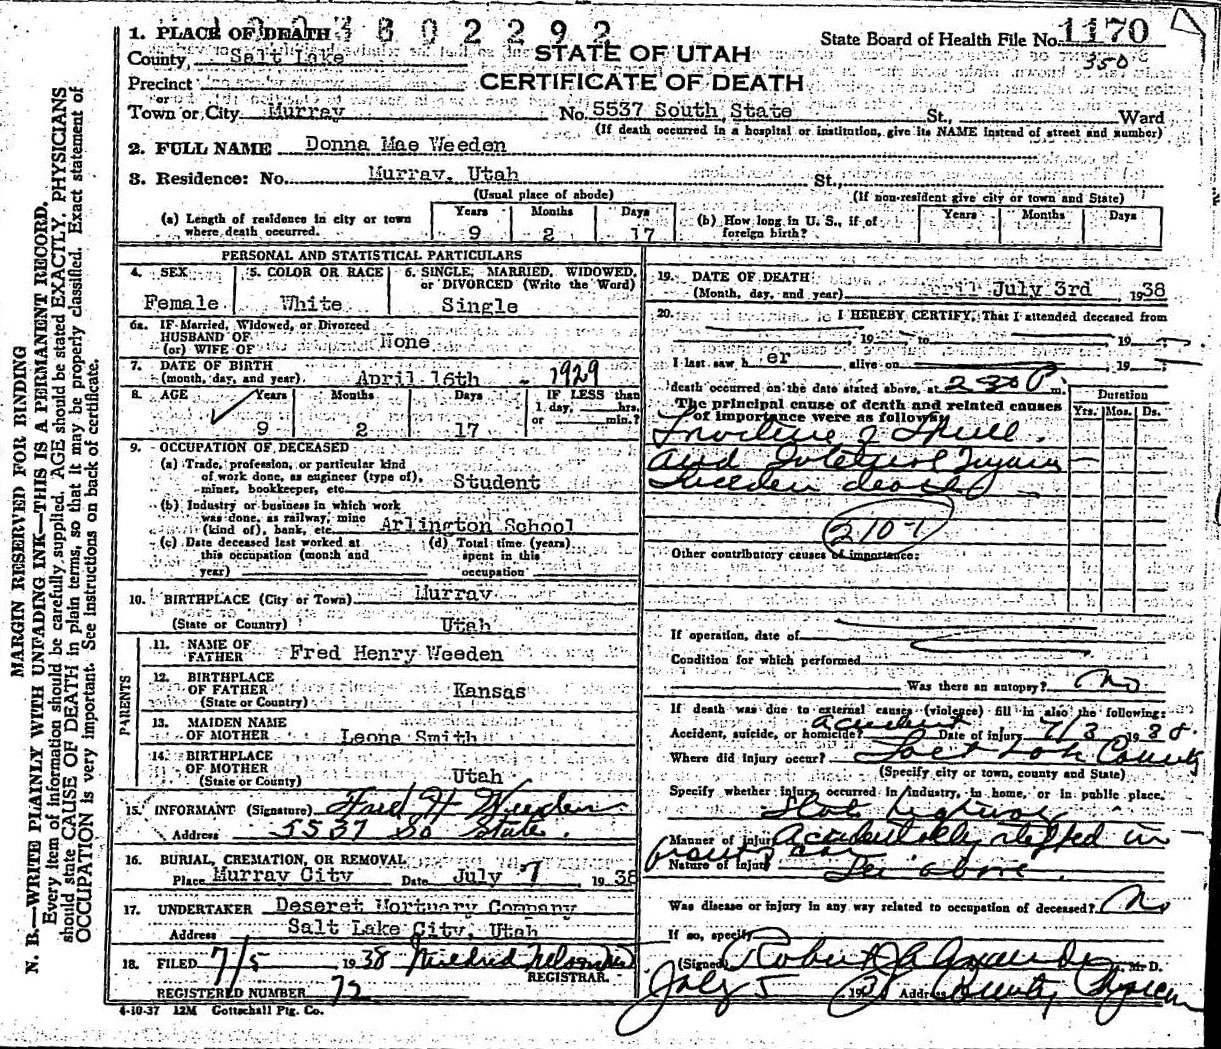 1. PLACE OF DEATH
State Board of Health File No. 1170
350
County, Salt Lake
STATE OF UTAH
CERTIFICATE OF DEATH
Precinct
or
Town or City Murray No. 5537 South State St., Ward
(If death occurred in a hospital or institution, give its NAME instead of street and number)
2. FULL NAME Donna Mae Weeden
3. Residence: No. Murray, Utah St.,
(Usual place of abode) (If non-resident give city or town and State)
(a) Length of residence in city or town where death occurred. Years 9 Months 2 Days 17
(b) How long in U. S., if of foreign birth? Years Months Days
PERSONAL AND STATISTICAL PARTICULARS
4. SEX Female
5. COLOR OR RACE White
6. SINGLE, MARRIED, WIDOWED, or DIVORCED (Write the Word) Single
6a. IF Married, Widowed, or Divorced
HUSBAND OF
(or) WIFE OF None
7. DATE OF BIRTH
(month, day, and year) April 16th - 1929
8. AGE Years 9 Months 2 Days 17 IF LESS than 1 day, hrs. or min.?
9. OCCUPATION OF DECEASED
(a) Trade, profession, or particular kind
of work done, as engineer (type of),
miner, bookkeeper, etc. Student
(b) Industry or business in which work
was done, as railway, mine
(kind of), bank, etc. Arlington School
(c) Date deceased last worked at this occupation (month and year)
(d) Total time (years) spent in this occupation
10. BIRTHPLACE (City or Town) Murray
(State or Country) Utah
PARENTS
11. NAME OF FATHER Fred Henry Weeden
12. BIRTHPLACE OF FATHER Kansas
(State or Country)
13. MAIDEN NAME OF MOTHER Leona Smith
14. BIRTHPLACE OF MOTHER
(State or County) Utah
15. INFORMANT (Signature) Fred H Weeden
Address 5537 So State.
16. BURIAL, CREMATION, OR REMOVAL
Place Murray City Date July 7 1938
17. UNDERTAKER Deseret Mortuary Company
Address Salt Lake City, Utah
18. FILED 7/5 1938 Mildred
REGISTRAR.
REGISTERED NUMBER 72
4-10-37 12M Gottschall Ptg. Co.
19. DATE OF DEATH
(Month, day, and year) April July 3rd 1938
20. I HEREBY CERTIFY, That I attended deceased from
19 to 19
I last saw her alive on 19
death occurred on the date stated above, at 2 30 P. m.
The principal cause of death and related causes
of importance were as follows:
Duration
Yrs. Mos. Ds.
Fracture of Skull.
and Internal Injury
Sudden death
210-1
Other contributory causes of importance:
If operation, date of
Condition for which performed
Was there an autopsy? No
If death was due to external causes (violence) fill in also the following:
Accident, suicide, or homicide? accident Date of injury 7/3 1938.
Where did injury occur? Salt Lake County
(Specify city or town, county and State)
Specify whether injury occurred in industry, in home, or in public place.
State highway
Manner of injury Accidentally stepped in
front of car
Nature of injury See above.
Was disease or injury in any way related to occupation of deceased? No
If so, specify
(Signed) Robert M. D.
July 5 1938 Address County Physician
MARGIN RESERVED FOR BINDING
N. B.—WRITE PLAINLY WITH UNFADING INK—THIS IS A PERMANENT RECORD.
Every item of information should be carefully supplied. AGE should be stated EXACTLY. PHYSICIANS
should state CAUSE OF DEATH in plain terms, so that it may be properly classified. Exact statement of
OCCUPATION is very important. See Instructions on back of certificate.